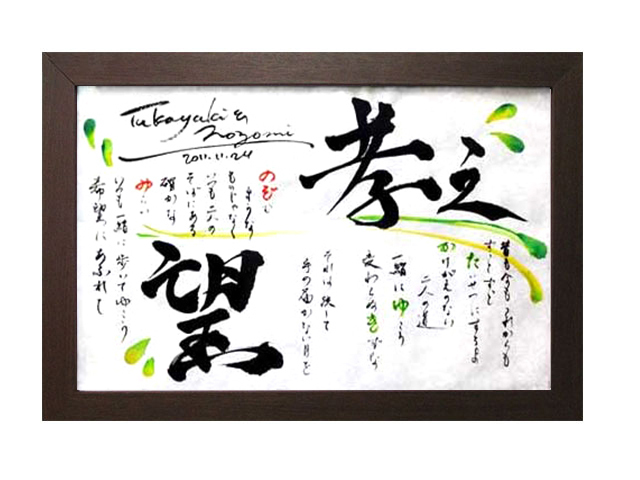 Takayuki &
Nozomi
2011.11.24
孝之
昔も今も これからも
ずーっとずっと
たいせつにするよ
かけがえのない
二人の道
一緒にゆこう
変わらぬきずな
それは決して
手の届かない月を
のぞむ
ような
ものじゃなく
いつも二人の
そばにある
確かな
みらい
いつも一緒に歩いてゆこう
希望にあふれし
望